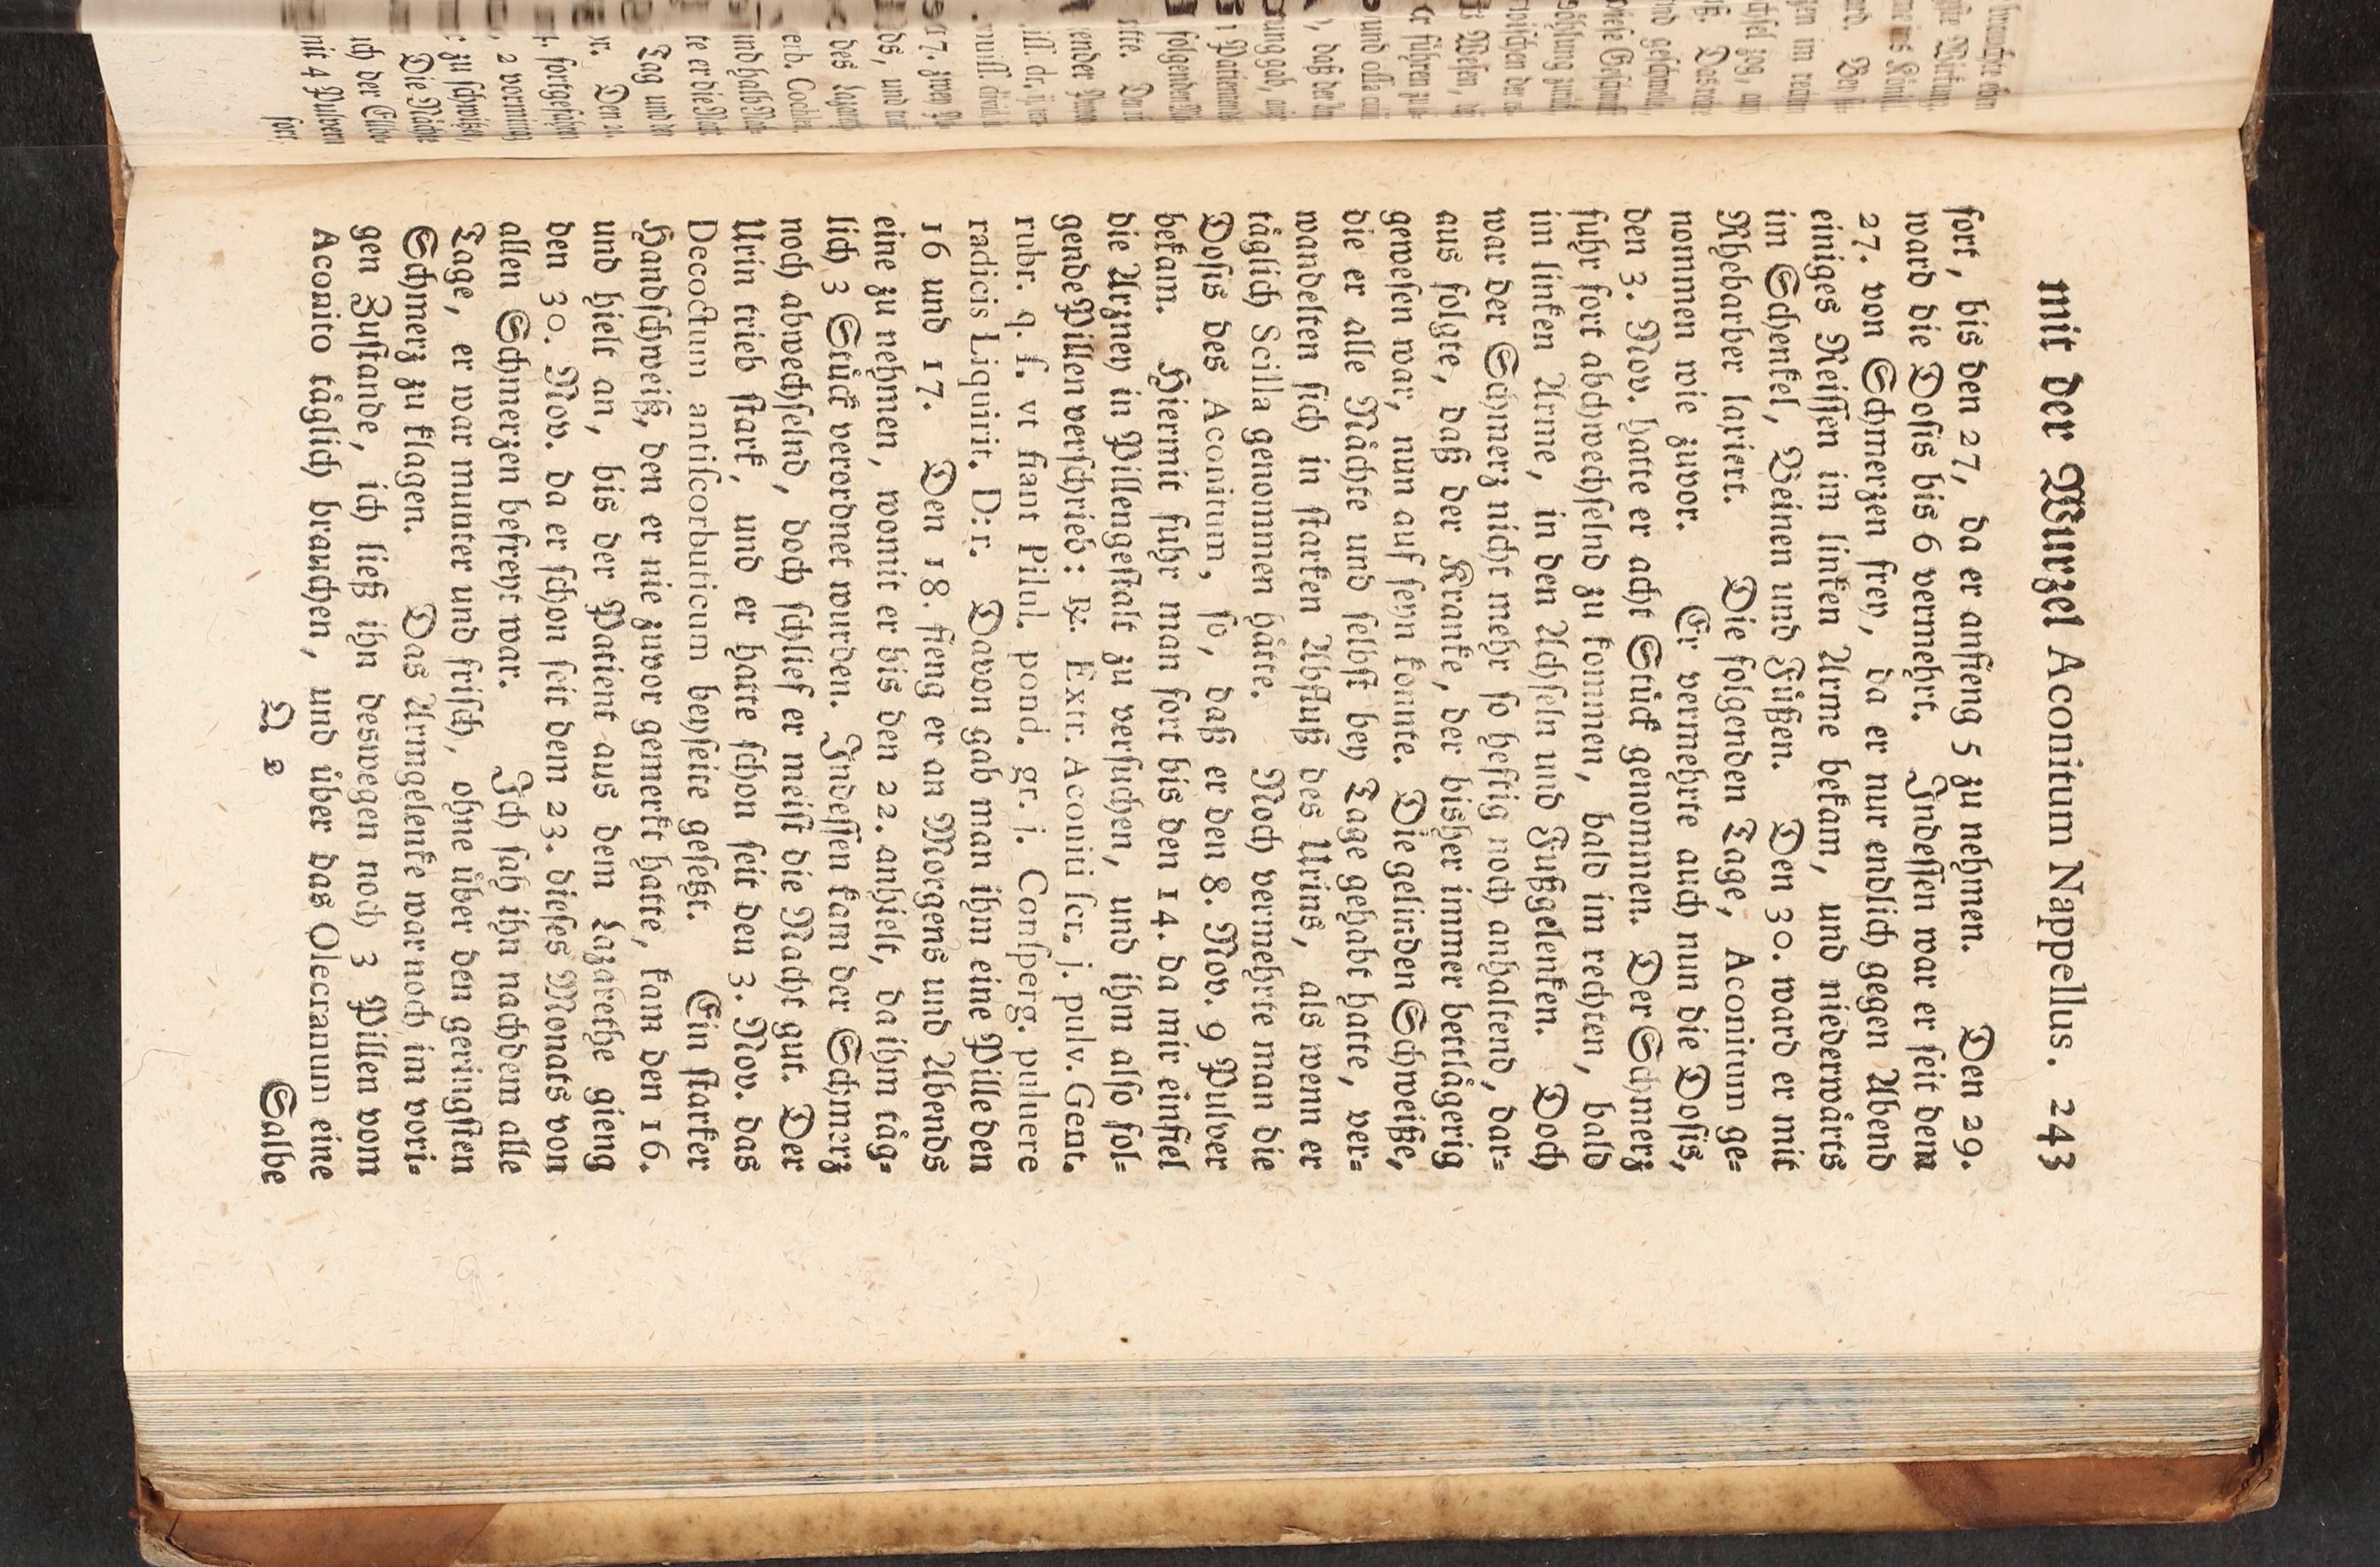 mit der Wurzel Aconitum Nappellus. 243
fort, bis den 27, da er anfieng 5 zu nehmen. Den 29.
ward die Dosis bis 6 vermehrt. Indessen war er seit dem
27. von Schmerzen frey, da er nur endlich gegen Abend
einiges Reissen im linken Arme bekam, und niederwårts
im Schenkel, Beinen und Füßen. Den 30. ward er mit
Rhebarber laxiert. Die folgenden Tage, Aconitum ge-
nommen wie zuvor. Er vermehrte auch nun die Dosis,
den 3. Nov. hatte er acht Stück genommen. Der Schmerz
fuhr fort abchwechselnd zu kommen, bald im rechten, bald
im linken Arme, in den Achseln und Fußgelenken. Doch
war der Schmerz nicht mehr so heftig noch anhaltend, dar-
aus folgte, daß der Kranke, der bisher immer bettlågerig
gewesen war, nun auf seyn konnte. Die gelinden Schweiße,
die er alle Nåchte und selbst bey Tage gehabt hatte, ver-
wandelten sich in starken Abfluß des Urins, als wenn er
tåglich Scilla genommen håtte. Noch vermehrte man die
Dosis des Aconitum, so, daß er den 8. Nov. 9 Pulver
bekam. Hiermit fuhr man fort bis den 14. da mir einfiel
die Arzney in Pillengestalt zu versuchen, und ihm also fol-
gende Pillen verschrieb: ℞. Extr. Aconiti scr. j. pulv. Gent.
rubr. q. s. vt fiant Pilul. pond. gr. j. Consperg. puluere
radicis Liquirit. D: r. Davon gab man ihm eine Pille den
16 und 17. Den 18. fieng er an Morgens und Abends
eine zu nehmen, womit er bis den 22. anhielt, da ihm tåg-
lich 3 Stück verordnet wurden. Indessen kam der Schmerz
noch abwechselnd, doch schlief er meist die Nacht gut. Der
Urin trieb stark, und er hatte schon seit den 3. Nov. das
Decoctum antiscorbuticum beyseite gesetzt. Ein starker
Handschweiß, den er nie zuvor gemerkt hatte, kam den 16.
und hielt an, bis der Patient aus dem Lazarethe gieng
den 30. Nov. da er schon seit dem 23. dieses Monats von
allen Schmerzen befreyt war. Ich sah ihn nachdem alle
Tage, er war munter und frisch, ohne über den geringsten
Schmerz zu klagen. Das Armgelenke war noch im vori-
gen Zustande, ich ließ ihn deswegen noch 3 Pillen vom
Aconito tåglich brauchen, und über das Olecranum eine
Q 2 Salbe